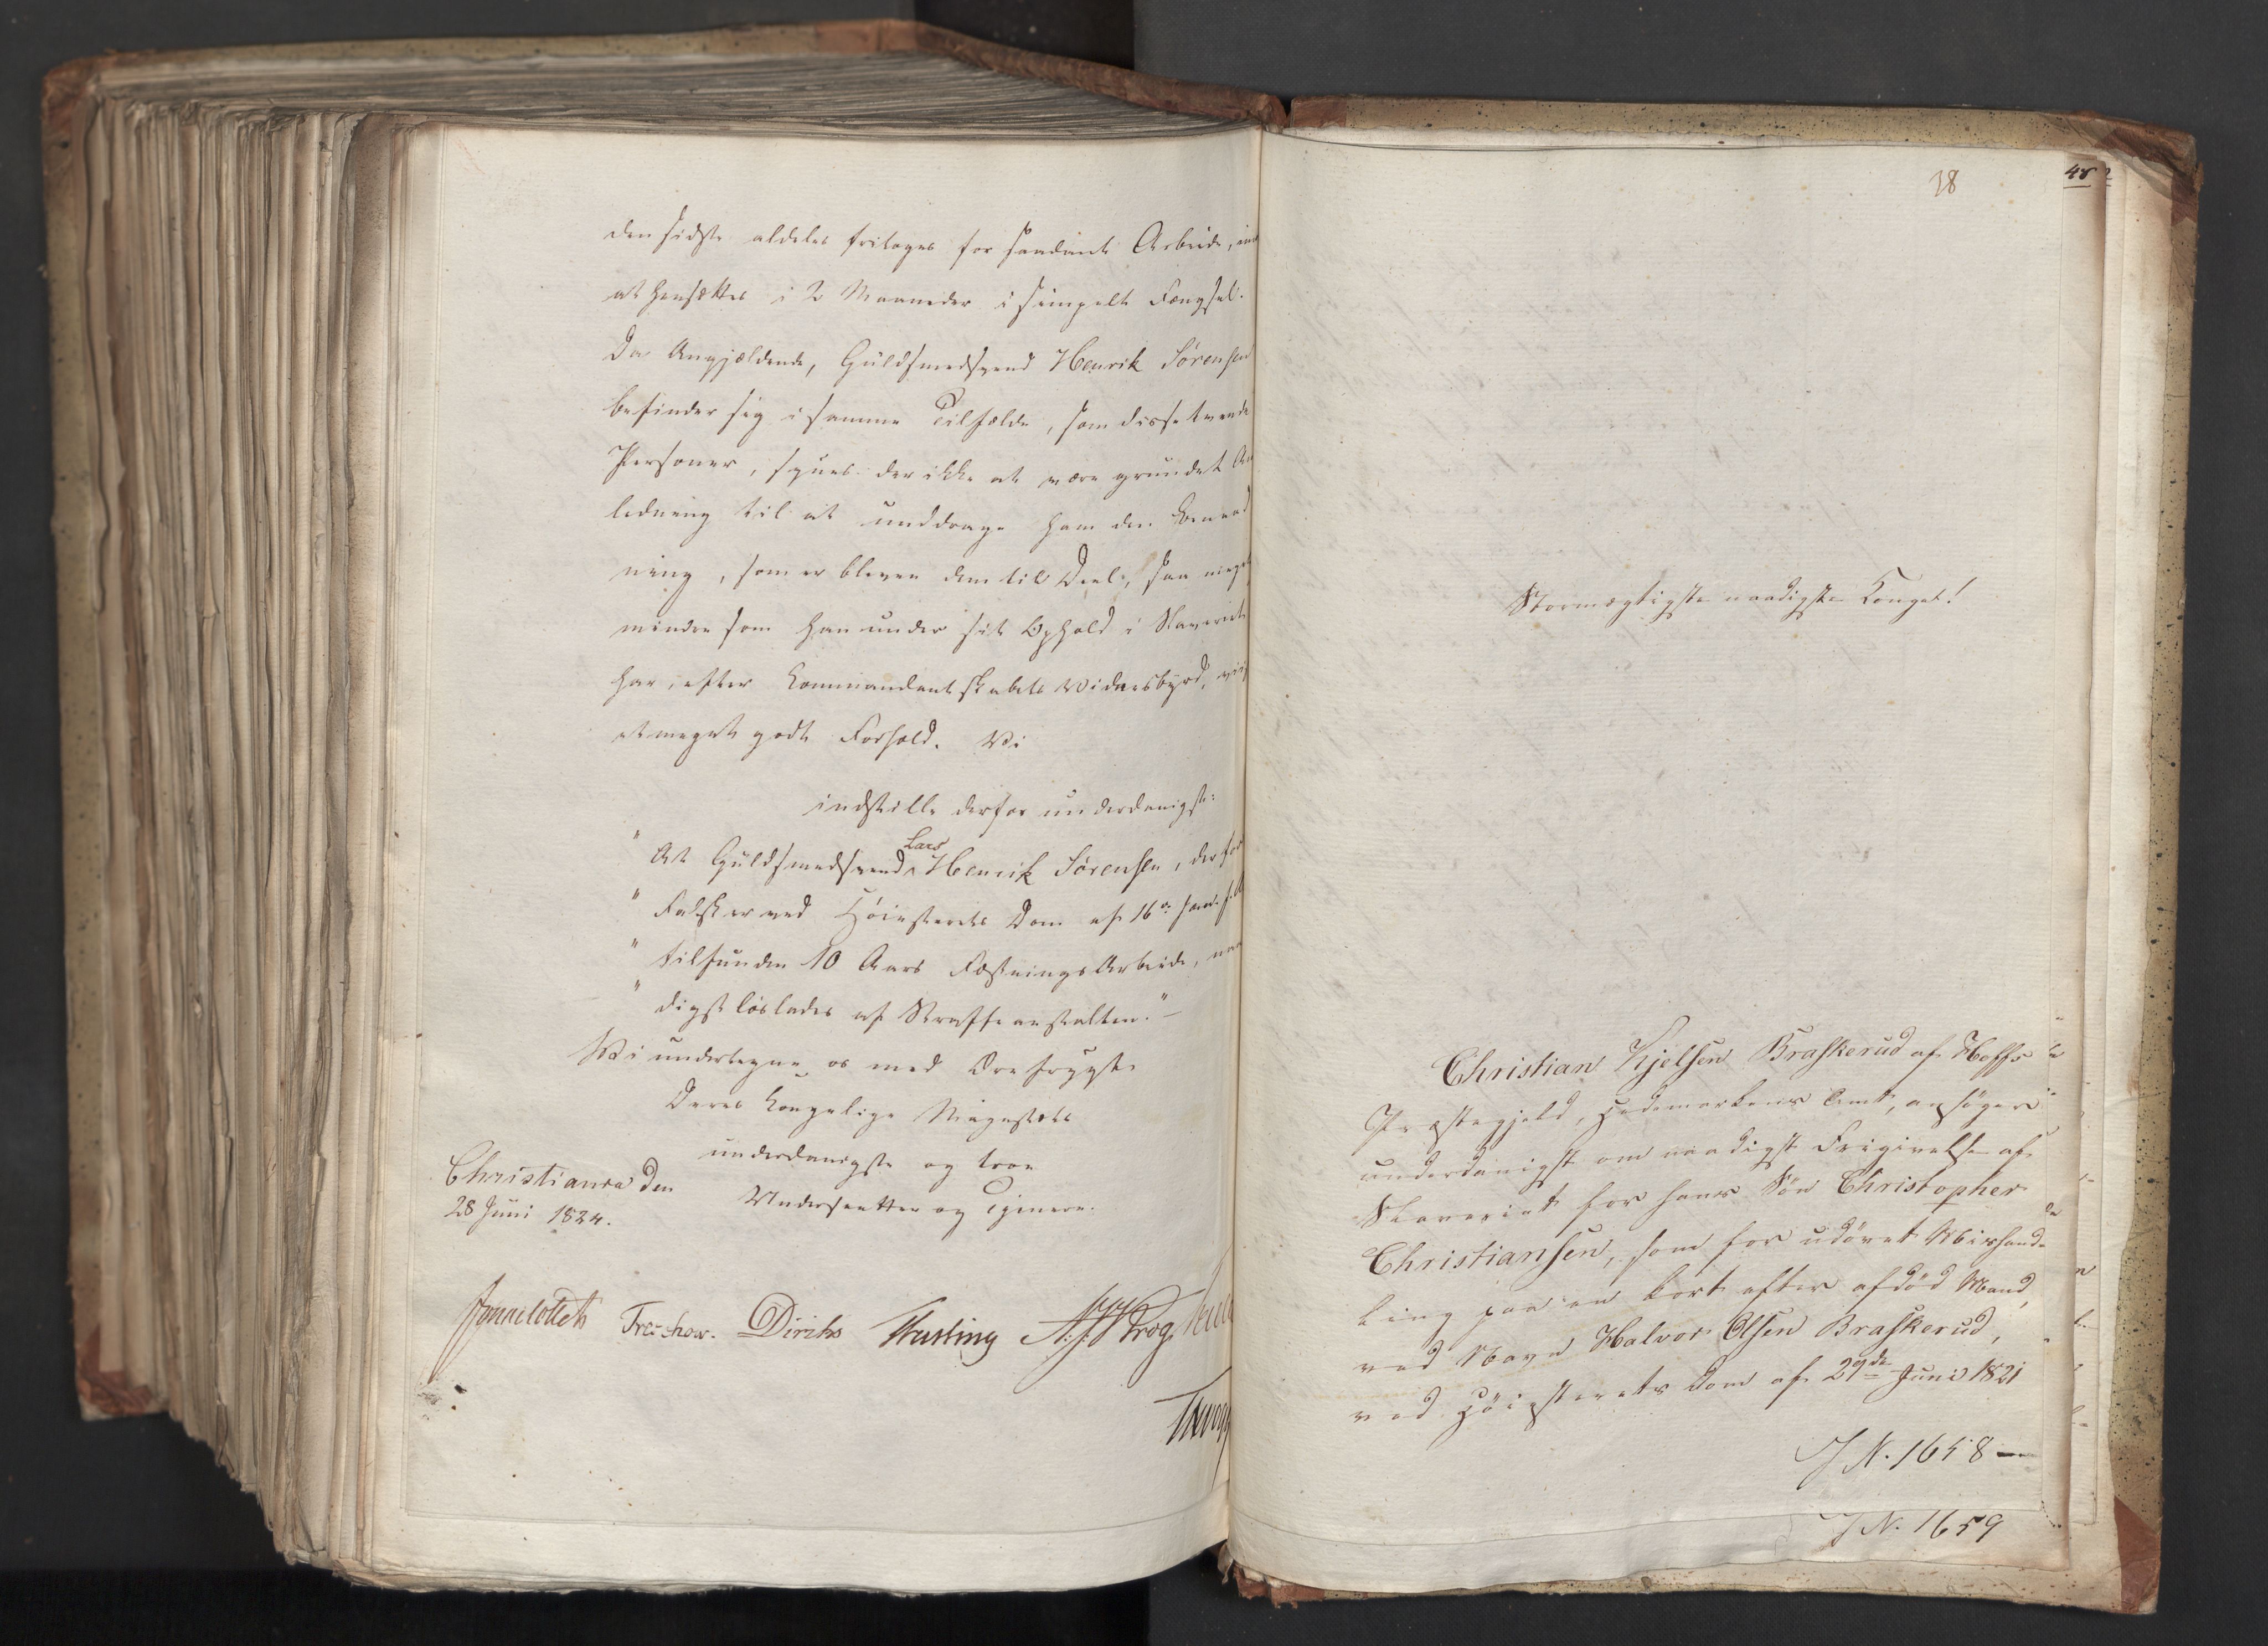 den sidste aldeles fritages for saadant Arbeide, imod
at hensættes i 2 Maaneder i simpelt Fængsel.
Da Angjældende, Guldsmedsvend Henrik Sörensen
befinder sig i samme Tilfælde, som disse tvende
Personer, synes der ikke at være grundet An
ledning til at unddrage ham den Benaad
ning, som er bleven dem til Deel, saa meget
mindre som han under sit Ophold i Slaveriet
har, efter Kommandantskabets Vidnesbyrd, viist
et meget godt Forhold. Vi
indstille derfor underdanigst:
" At Guldsmedsvend Lars Henrik Sörensen, der for
" Falsk er ved Höiesterets Dom af 16
" tilfunden 10 Aars Fæstnings Arbeide, naa
" digst löslades af Straffeanstalten." –
Vi undertegne os med Ærefrygt
Deres Kongelige Majestæts
underdanigste og troe
Undersaatter og Tjenere.
Christiania den
28 Juni 1824.
Sommelbach Treschow. Diriks Fasting
38
48
Stormægtigste naadigste Konge!
Christian Kjelsen Braskerud af Hoffs
Præstegjeld, Hedemarkens Amt, ansöger
underdanigst om naadigst Frigivelse af
Slaveriet for hans Sön Christopher
Christiansen, som for udövet Mishand-
ling paa en kort efter afdöd Mand,
ved Navn Halvor Olsen Braskerud,
ved Höiesterets Dom af 29de Juni 1821
J N. 1658 —
J N. 1659